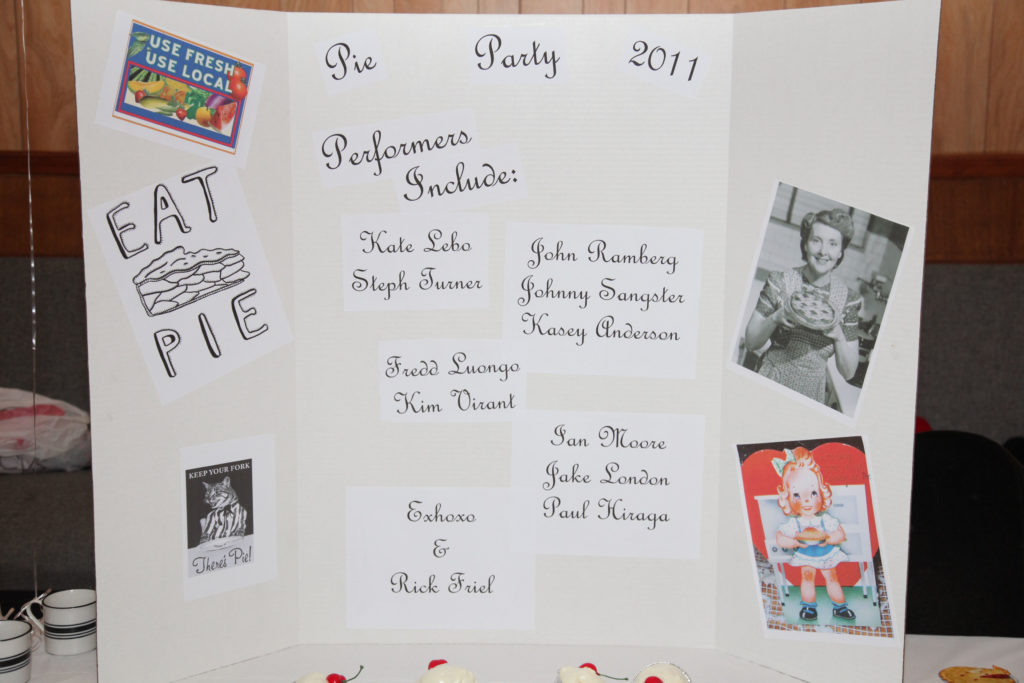 USE FRESH
USE LOCAL
EAT
PIE
KEEP YOUR FORK
There's Pie!
Pie Party 2011
Performers
Include:
Kate Lebo
Steph Turner
John Ramberg
Johnny Sangster
Kasey Anderson
Fredd Luongo
Kim Virant
Ian Moore
Jake London
Paul Hiraga
Exhoxo
&
Rick Friel